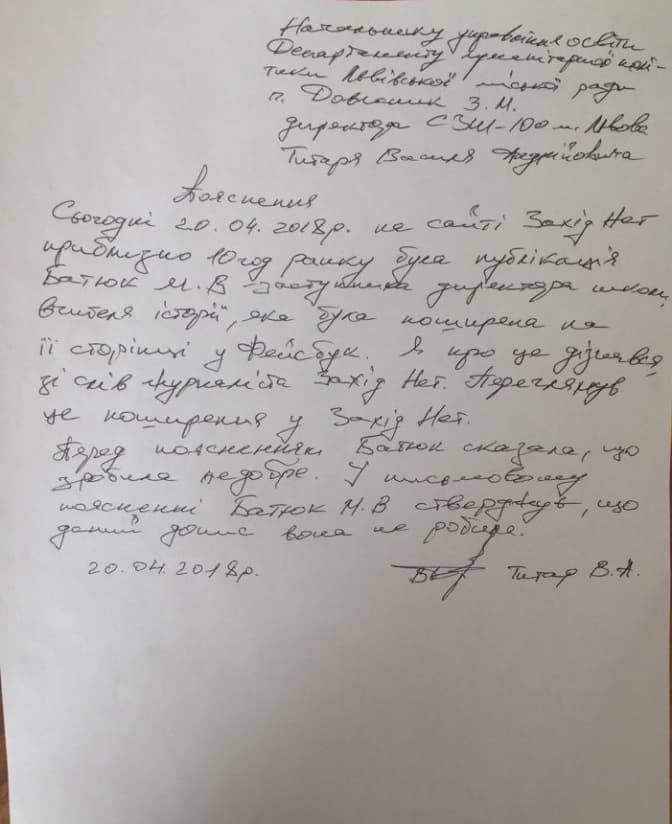 Начальнику управління освіти
Департаменту гуманітарної полі-
тики Львівської міської ради
п. Довганик З. М.
директора СЗШ-100 м. Львова
Титаря Василя Андрійовича
Пояснення
Сьогодні 20.04.2018р. на сайті Захід Нет
приблизно 10 год ранку була публікація
Батюк М.В - заступника директора школи,
вчителя історії, яка була поширена на
її сторінці у Фейсбук. Я про це дізнався
зі слів журналіста Захід Нет. Переглянув
це поширення у Захід Нет.
Перед поясненням Батюк сказала, що
зробила недобре. У письмовому
поясненні Батюк М.В стверджує, що
даний допис вона не робила.
20.04.2018р. Титар В.А.